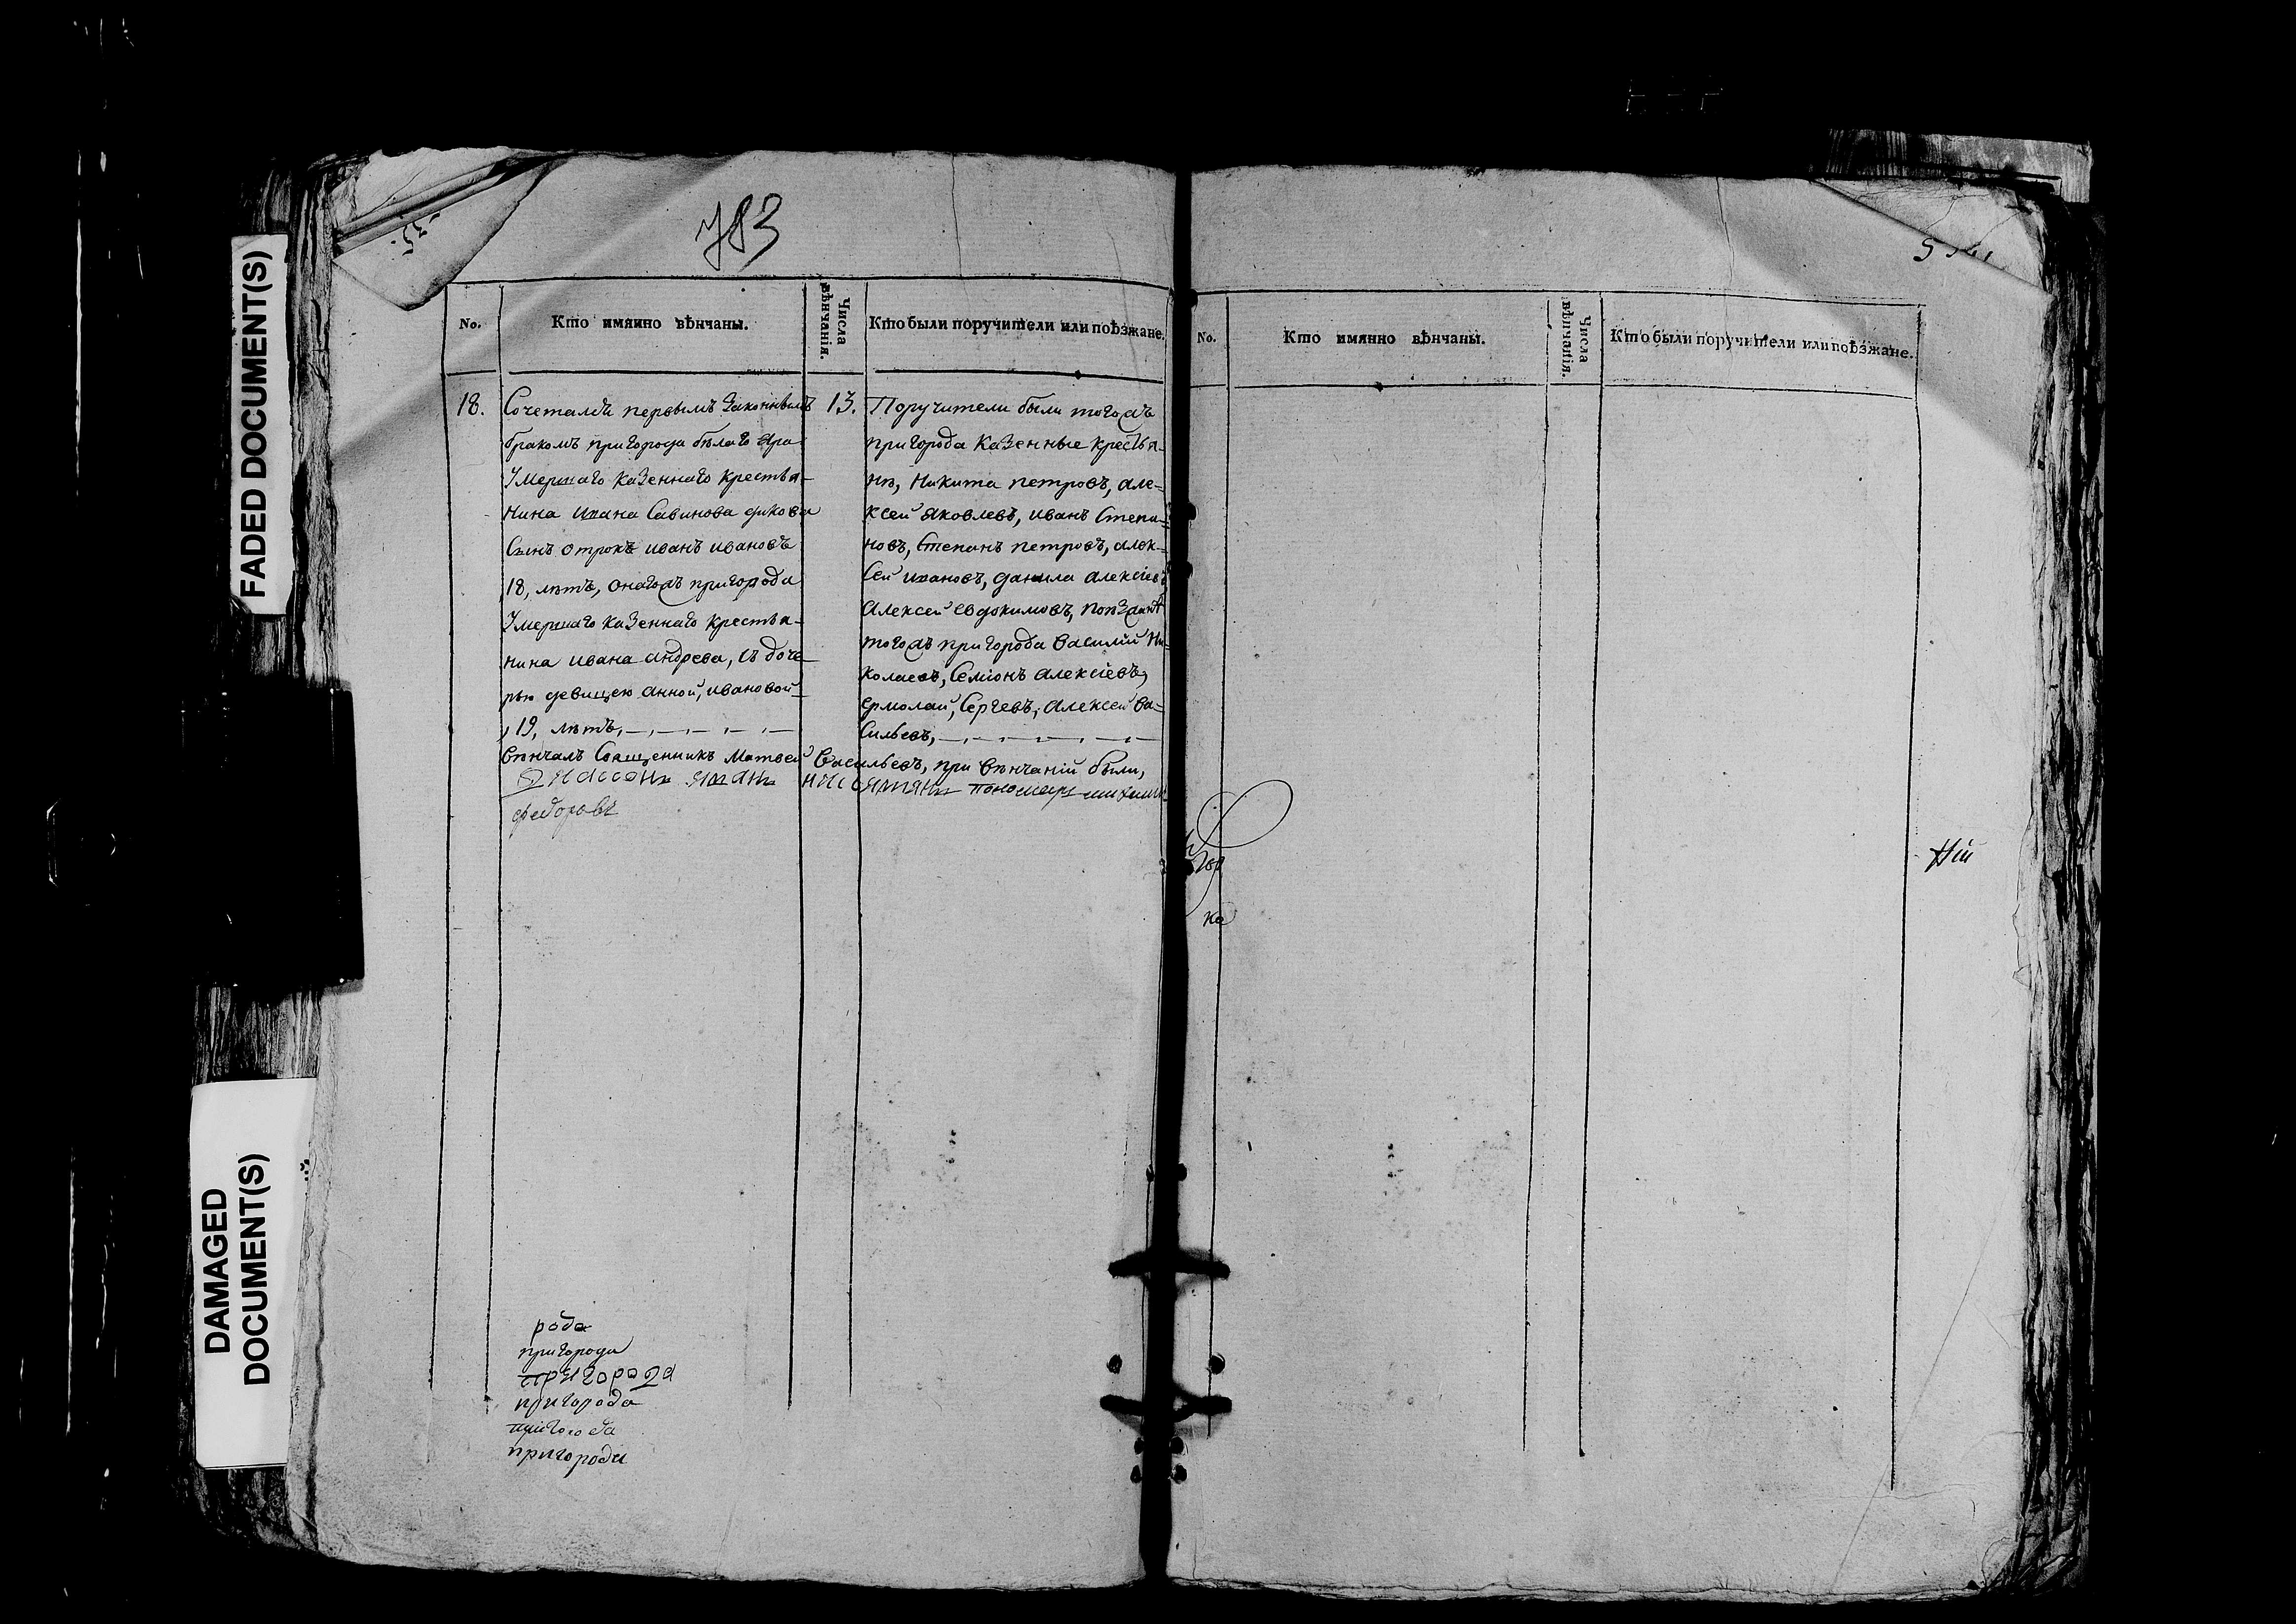 FADED DOCUMENT(S)
DAMAGED
DOCUMENT(S)
783
No.
Кто имянно вѣнчаны.
Числа
вѣнчанія.
Кто были поручители или поѣзжане.
18.
Сочетался первымъ Законнымъ
бракомъ пригорода бѣлаго Яра
Умершаго казеннаго крестья-
нина ивана Савинова
Сынъ отрокъ иванъ ивановъ
18, лѣтъ, онагожъ пригорода
Умершаго казеннаго крестья-
нина ивана андреева, съ доче-
рью девицею анной, ивановой
19, лѣтъ,
13.
Поручители были тогожъ
пригорода казенные крестья-
нѣ, Никита петровъ, але-
ксей яковлевъ, иванъ Степа-
новъ, Степанъ петровъ, алек-
сей ивановъ, данила алексіевъ
алексей евдокимовъ,
тогожъ пригорода василій Ни-
колаевъ, Семіонъ алексіевъ,
ермолай, Сергевъ, алексей ва-
сильевъ,
вѣнчалъ Священникъ Матвей Васильевъ, при вѣнчаніи были,
пономарь
федоровъ
рода
пригорода
пригорода
пригорода
пригорода
пригорода
No.
Кто имянно вѣнчаны.
Числа
вѣнчанія.
Кто были поручители или поѣзжане.
ка
ній